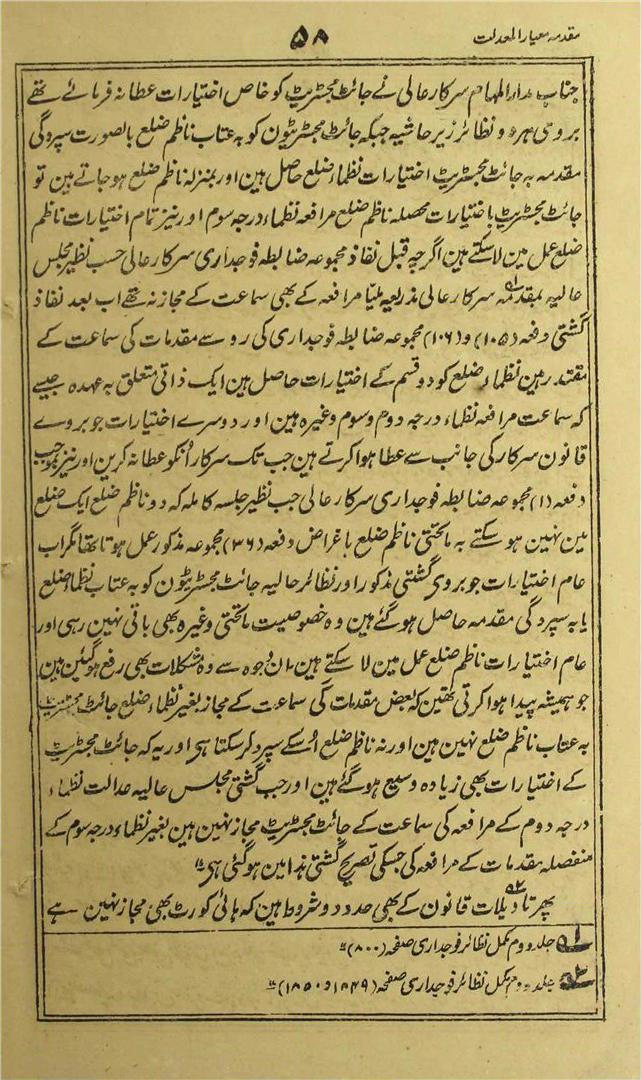 مقدمہ معیار المعدلت
۵۸
جناب مدار المہام سرکار عالی نے جائنٹ مجسٹریٹ کو خاص اختیارات عطا نہ فرمائے تھے
بروی ہر دو نظائر زیر حاشیہ جبکہ جائنٹ مجسٹریٹون کو بہ عتاب ناظم ضلع بالصورت سپردگی
مقدمہ بہ جائنٹ مجسٹریٹ اختیارات نظماء ضلع حاصل ہین اور بمنزلہ ناظم ضلع ہو جاتے ہین تو
جائنٹ مجسٹریٹ باختیارات محصلہ ناظم ضلع مرافعہ نظماء درجہ سوم اور نیز تمام اختیارات ناظم
ضلع عمل مین لا سکتے ہین اگرچہ قبل نفاذ مجموعہ ضابطہ فوجداری سرکار عالی حسب نظیر مجلس
عالیہ بمقدمہ سرکار عالی مذریعہ ملیّا مرافعہ کے بھی سماعت کے مجاز نہ تھے اب بعد نفاذ
گشتی دفعہ (۱۰۵) و (۱۰۶) مجموعہ ضابطہ فوجداری کی رو سے مقدمات کی سماعت کے
مقتدر ہین نظماء ضلع کو دو قسم کے اختیارات حاصل ہین ایک ذاتی متعلق بہ عہدہ جیسے
کہ سماعت مرافعہ نظماء درجہ دوم و سوم وغیرہ ہین اور دوسرے اختیارات جو بروے
قانون سرکار کی جانب سے عطا ہوا کرتے ہین جب تک سرکار اُنکو عطا نہ کرین اور نیز بموجب
دفعہ (۱) مجموعہ ضابطہ فوجداری سرکار عالی حسب نظیر جلسہ کاملہ کہ دو ناظم ضلع ایک ضلع
مین نہین ہو سکتے بہ ماتحتی ناظم ضلع باغراض دفعہ (۳۶) مجموعہ مذکور عمل ہوتا تھا مگر اب
عام اختیارات جو بروی گشتی مذکور اور نظائر حالیہ جائنٹ مجسٹریٹون کو بہ عتاب نظماء ضلع
یا بہ سپردگی مقدمہ حاصل ہو گئے ہین وہ خصوصیت ماتحتی وغیرہ بھی باقی نہین رہی اور
عام اختیارات ناظم ضلع عمل مین لا سکتے ہین۔ ان وجوہ سے وہ مشکلات بھی رفع ہو گئین ہین
جو ہمیشہ پیدا ہوا کرتی تھین کہ بعض مقدمات کی سماعت کے مجاز بغیر نظماء ضلع جائنٹ مجسٹریٹ
بہ عتاب ناظم ضلع نہین ہین اور نہ ناظم ضلع اُسکے سپرد کر سکتا ہی اور یہ کہ جائنٹ مجسٹریٹ
کے اختیارات بھی زیادہ وسیع ہو گئے ہین اور حسب گشتی مجلس عالیہ عدالت نظماء
درجہ دوم کے مرافعہ کی سماعت کے جائنٹ مجسٹریٹ مجاز نہین ہین بغیر نظماء درجہ سوم کے
منفصلہ مقدمات کے مرافعہ کی جسکی تصریح گشتی ہذا مین ہو گئی ہی
پھر تاویلات قانون کے بھی حدود و شروط ہین کہ ہائی کورٹ بھی مجاز نہین ہے
۱ جلد دوم مکمل نظائر فوجداری صفحہ (۸۰۰)
۲ جلد دوم مکمل نظائر فوجداری صفحہ (۱۸۴۹ و ۱۸۵۰)